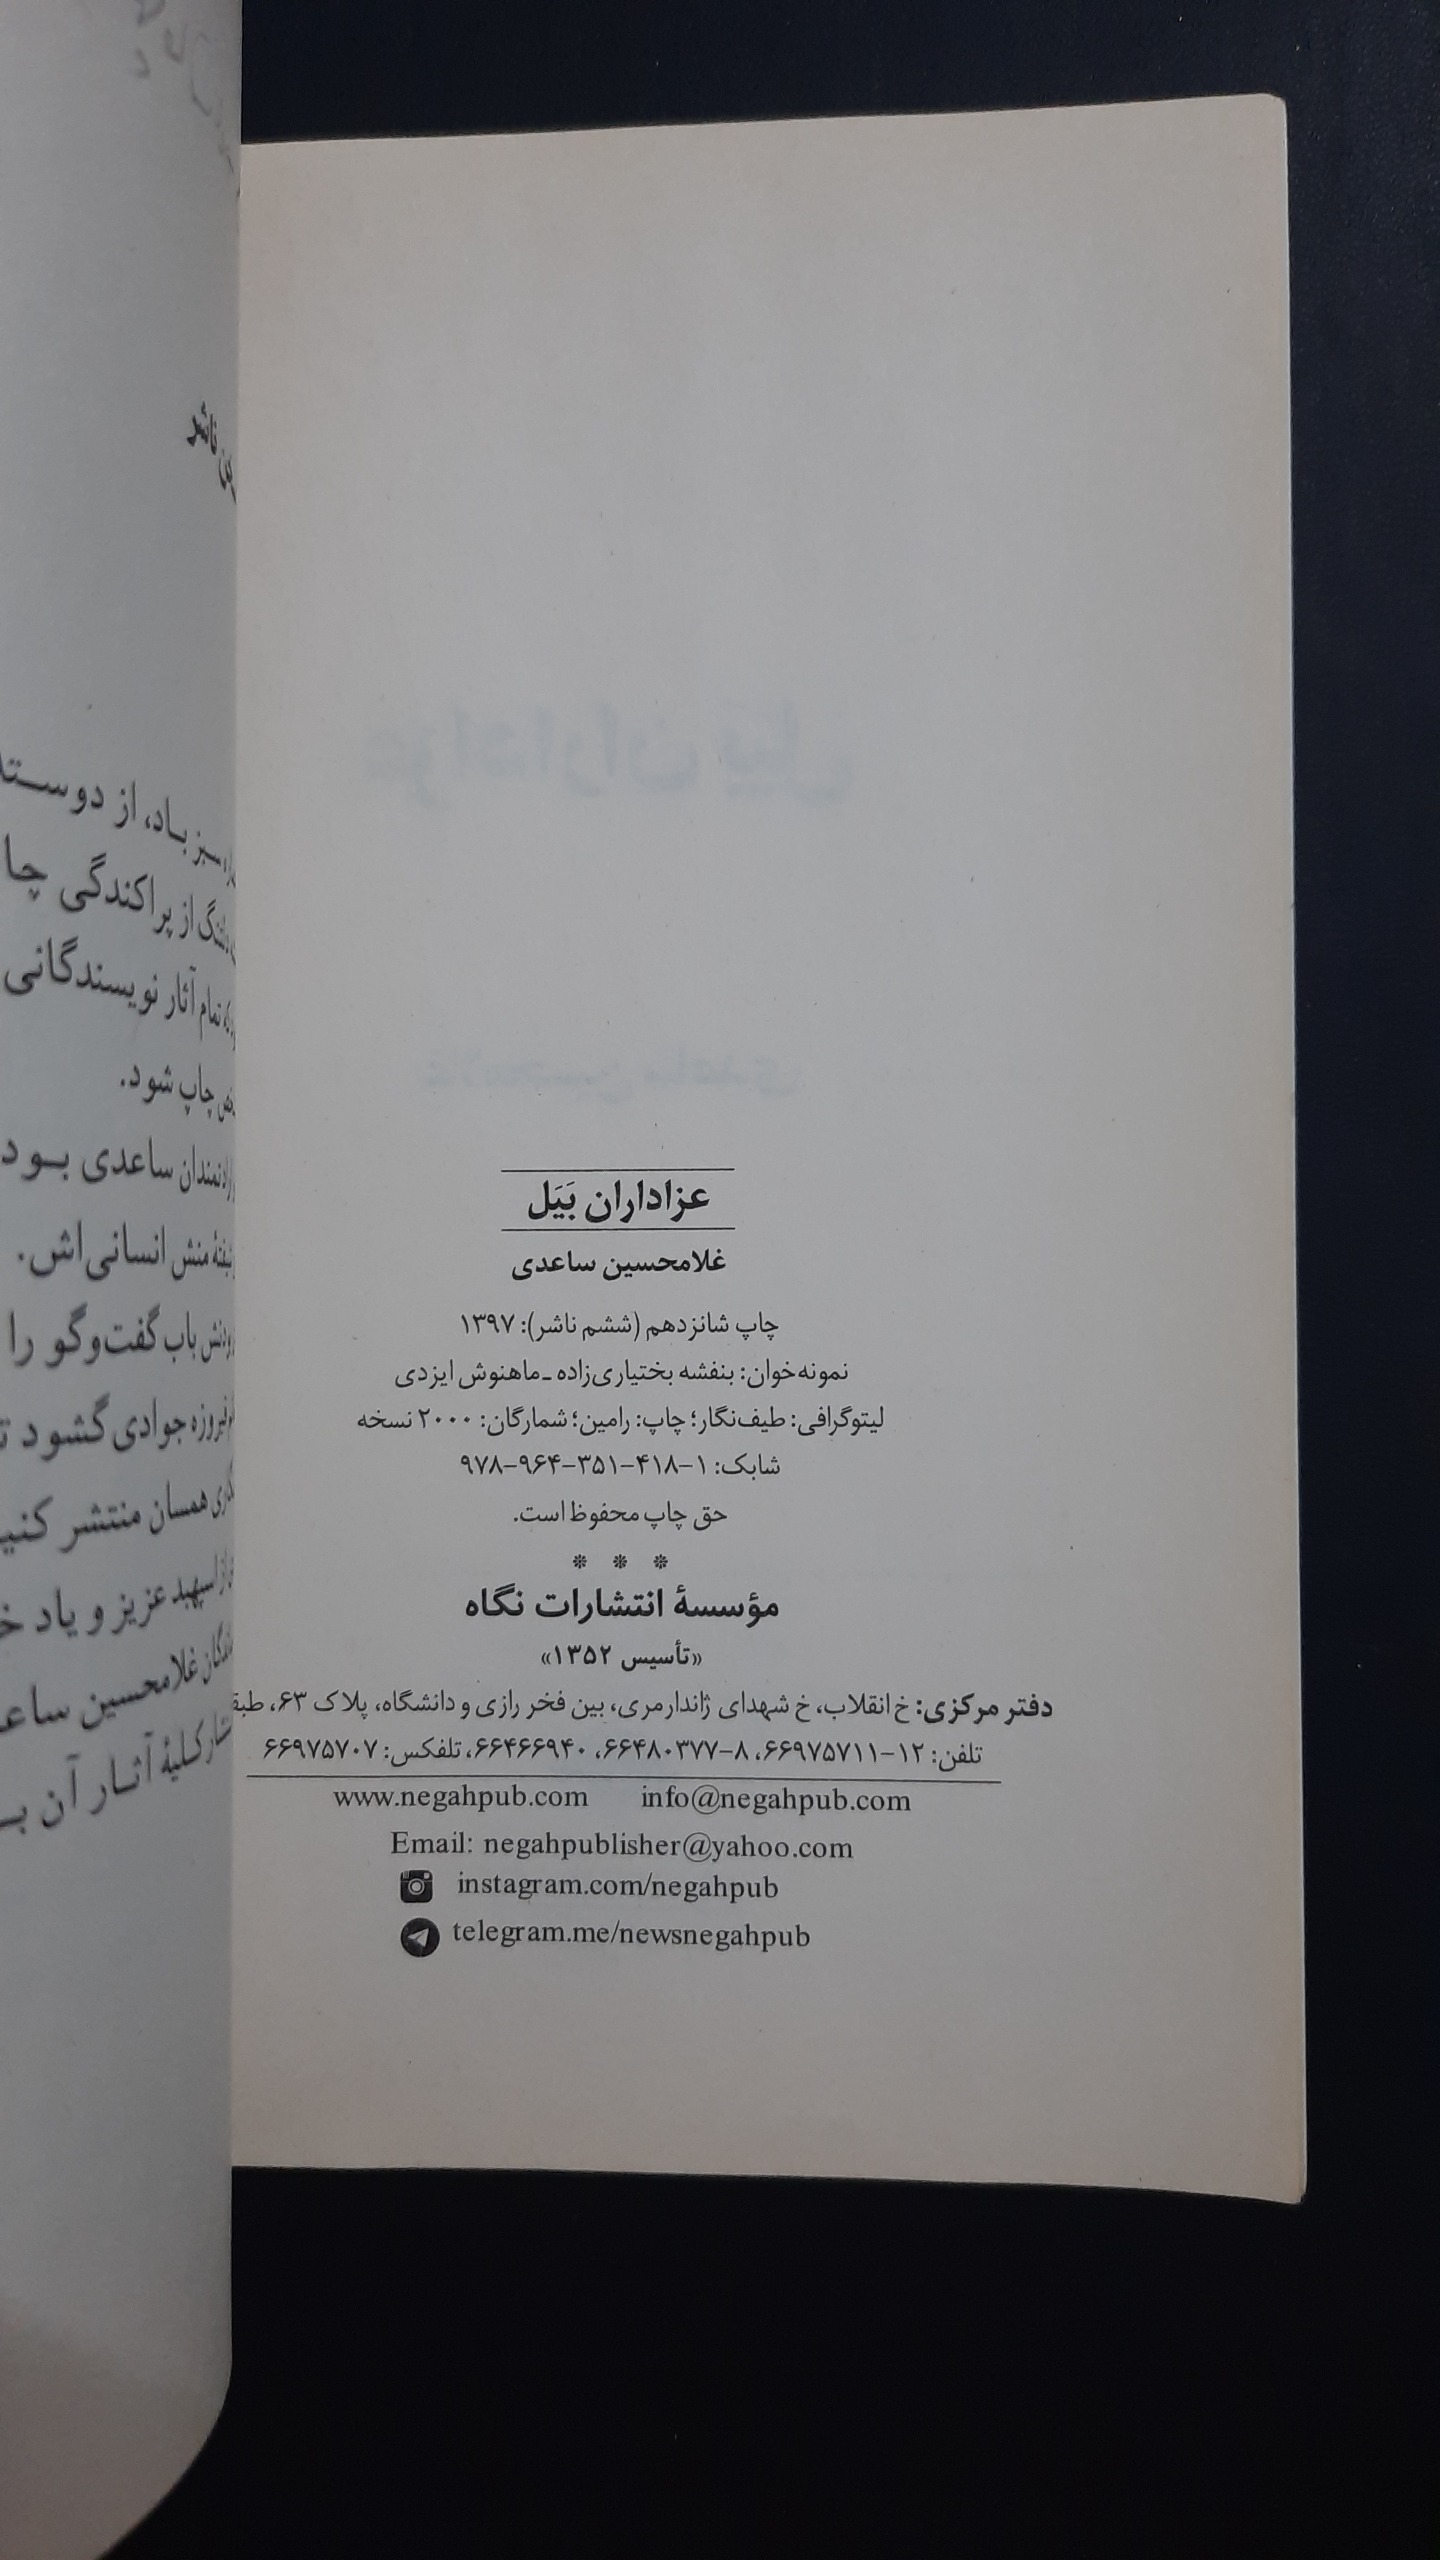 عزاداران بَیَل
غلامحسین ساعدی
چاپ شانزدهم (ششم ناشر): ۱۳۹۷
نمونه‌خوان: بنفشه بختیاری‌زاده ـ ماهنوش ایزدی
لیتوگرافی: طیف‌نگار؛ چاپ: رامین؛ شمارگان: ۲۰۰۰ نسخه
شابک: ۱-۴۱۸-۳۵۱-۹۶۴-۹۷۸
حق چاپ محفوظ است.
* * *
مؤسسهٔ انتشارات نگاه
«تأسیس ۱۳۵۲»
دفتر مرکزی: خ انقلاب، خ شهدای ژاندارمری، بین فخر رازی و دانشگاه، پلاک ۶۳،
تلفن: ۱۲-۶۶۹۷۵۷۱۱، ۸-۶۶۴۸۰۳۷۷، ۶۶۴۶۶۹۴۰، تلفکس: ۶۶۹۷۵۷۰۷
www.negahpub.com info@negahpub.com
Email: negahpublisher@yahoo.com
instagram.com/negahpub
telegram.me/newsnegahpub
ناشر
سبز باد، از
از پراکندگی
تمام آثار نویسندگانی
چاپ شود.
ساعدی بود
منش انسانی‌اش.
باب گفت‌وگو را
جوادی گشود
همسان منتشر
عزیز و یاد
غلامحسین
کلیهٔ آثار آن